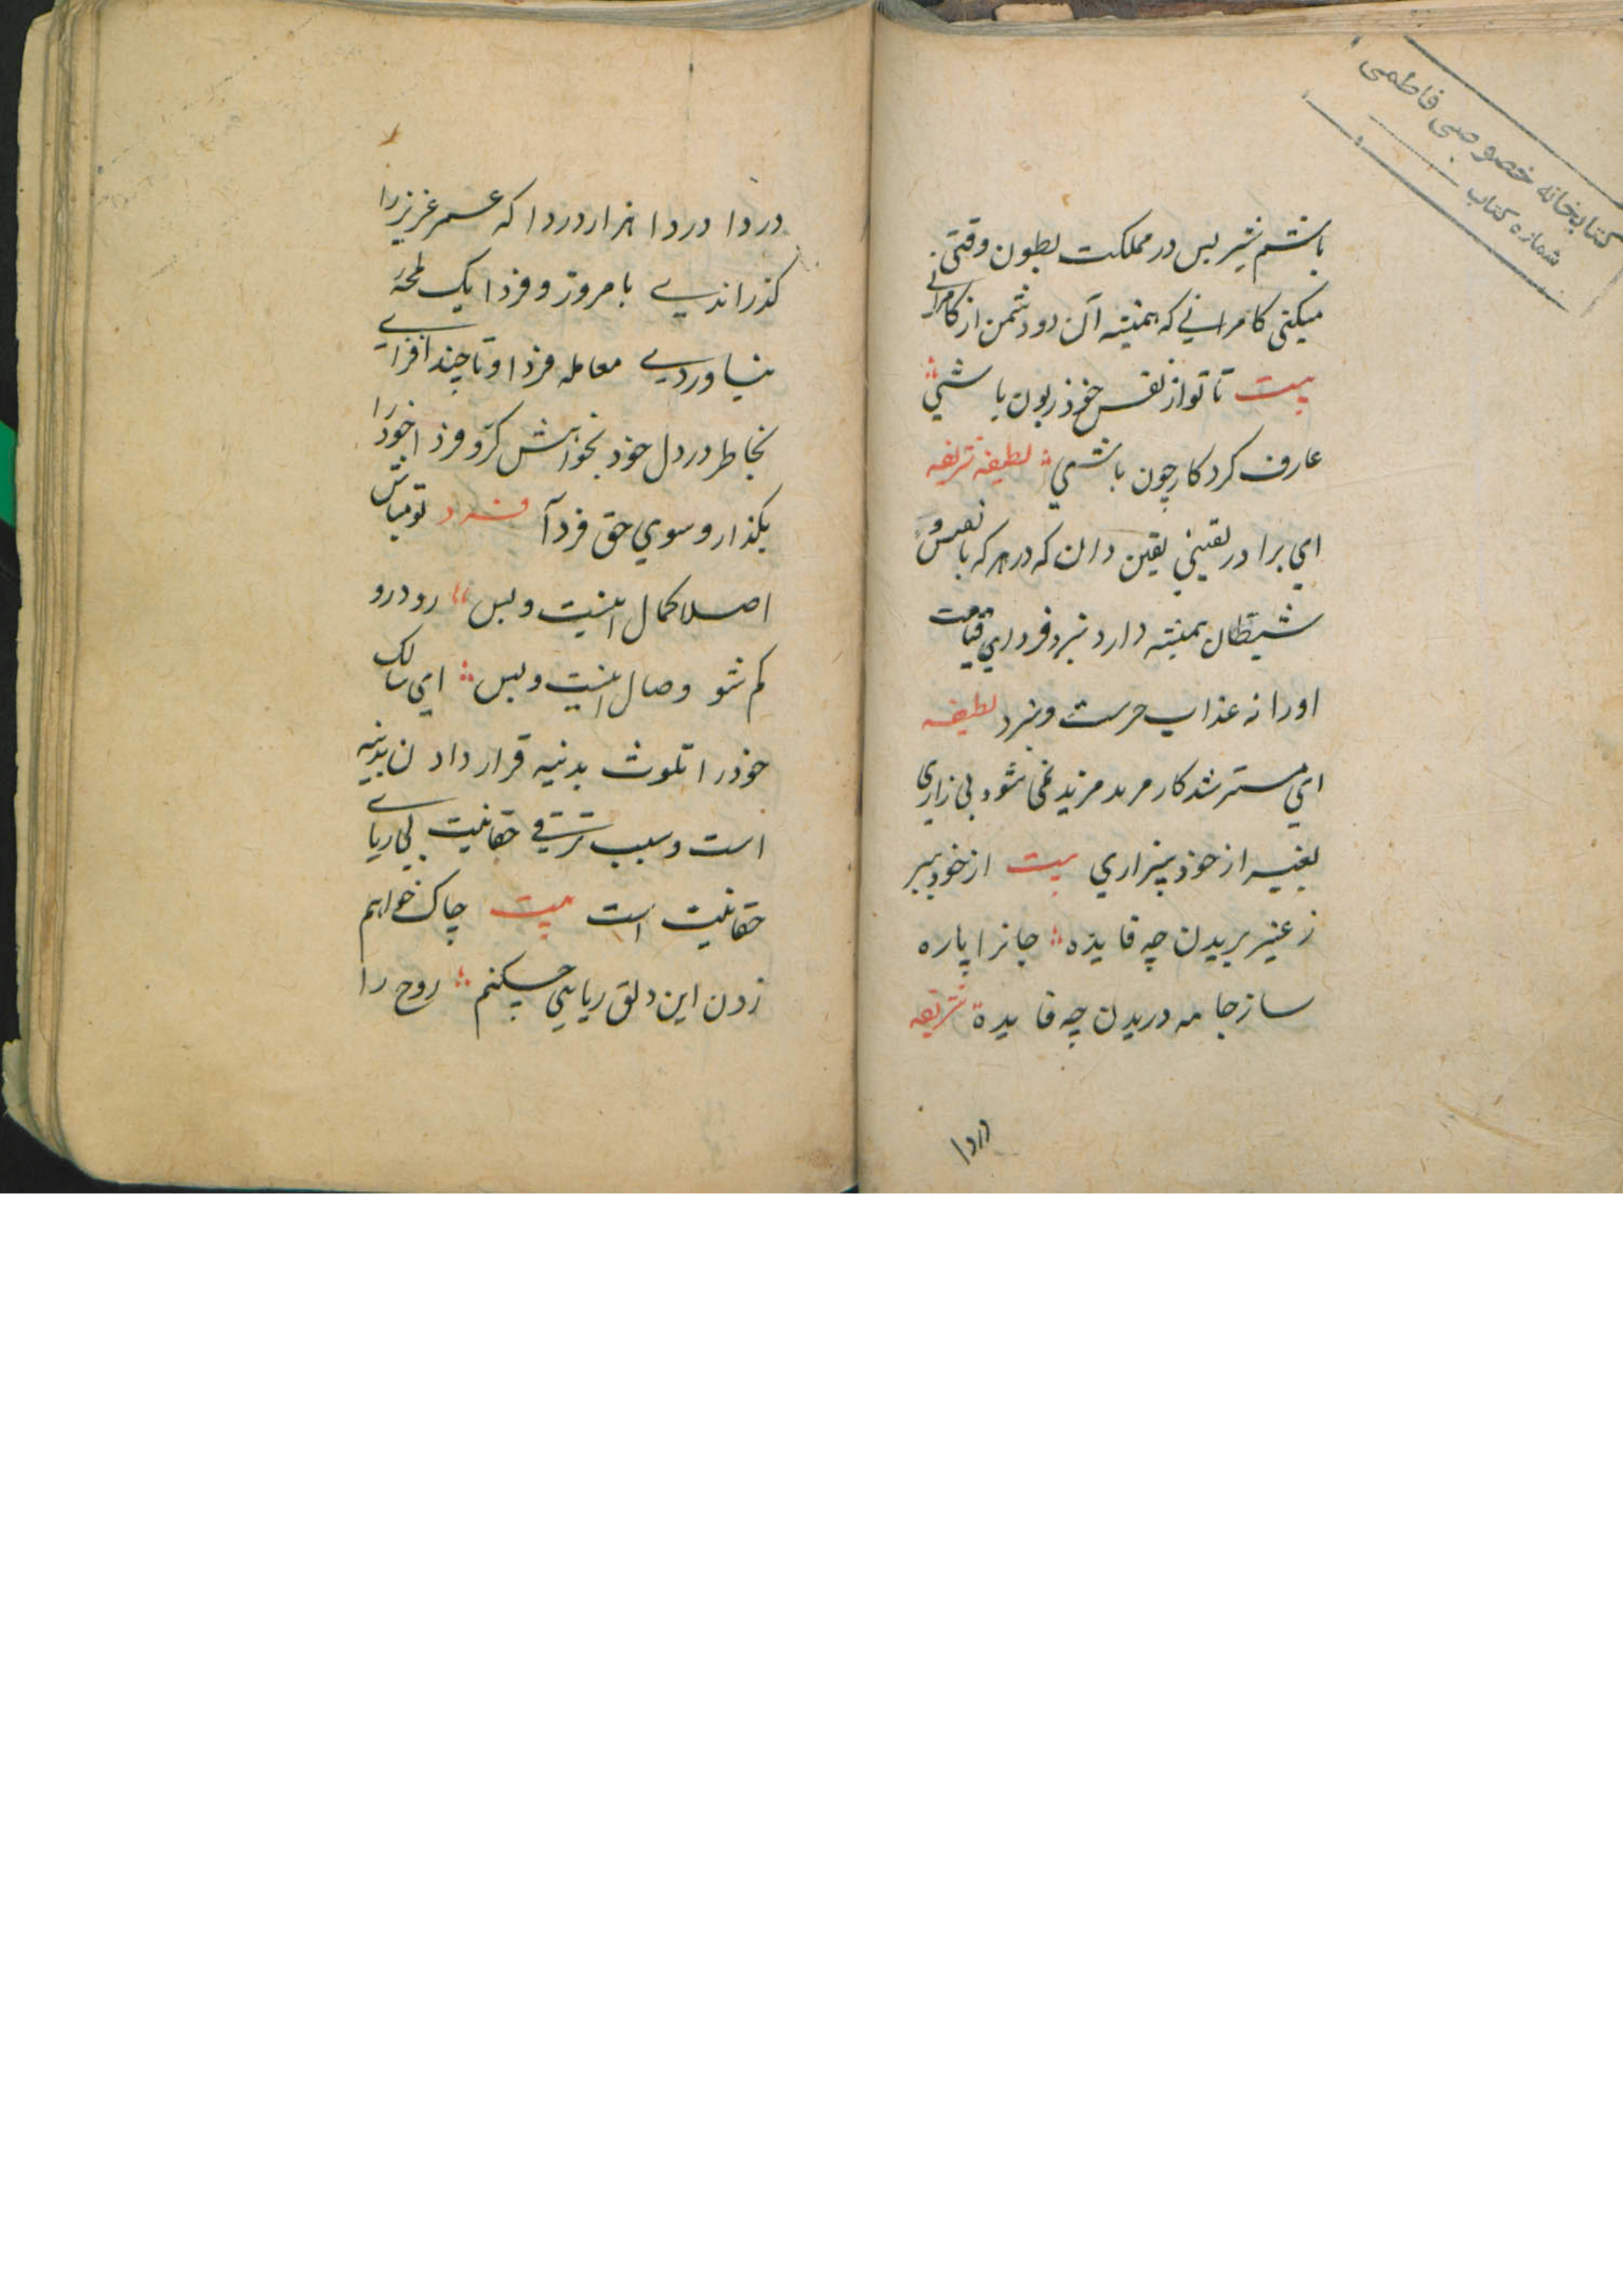 کتابخانه خصوصی فاطمی
شماره کتاب
باشم شیر بس در مملکت بطون وقتی
میکنی کامرانی که همیشه آن دو دشمن از کامرانی
بیت تا تو از نفس خود زبون باشی
عارف کردکار چون باشی لطیفه شریفه
ای برادر یقینی یقین دان که در هر که با نفس و
شیطان همیشه دارد نبرد فردای قیامت
او را نه عذاب حرست و نبرد لطیفه
ای مسترشد کار مرید مزید نمی شود بی زاری
بغیر از خود بیزاری بیت از خود ببر
ز غیر بریدن چه فایده جانرا پاره
ساز جامه دریدن چه فایدة شریفه
دردا
دردا دردا هزار دردا که عمر عزیز را
کذراندی بامروز و فردا یک لمحه
نیاوردی معامله فردا و تا چند افزایی
بخاطر در دل خود بخواهش کرّ و فر ذا خود را
بکذار و سوی حق فرد آ فرد تو مباش
اصلا کمال اینیت و بس رو درو
کم شو وصال اینیت و بس ای سالک
خود را تلوث بدنیه قرار دادن
است و سبب ترقی حقانیت بی ریای
حقانیت است بیت چاک خواهم
زدن این دلق ریایی چکنم روح را